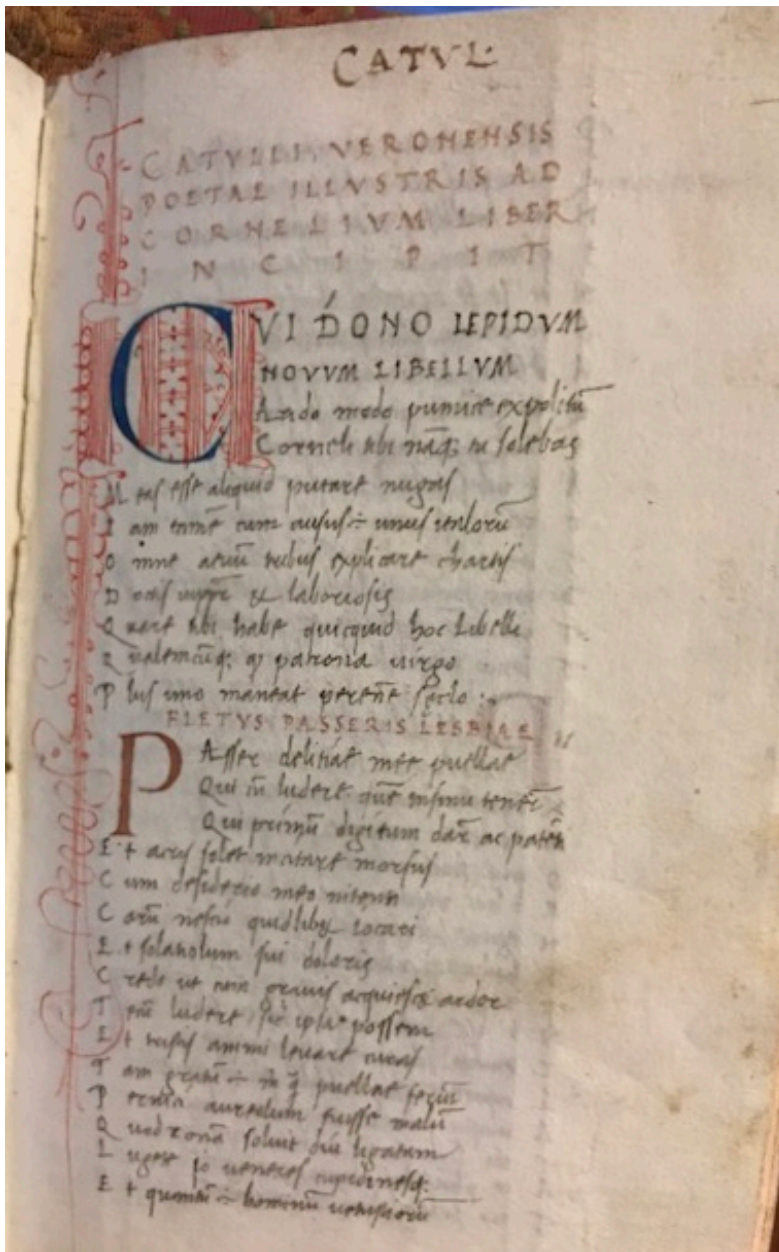 CATVL·
CATVLLI VERONENSIS
POETAE ILLVSTRIS AD
CORNELIVM LIBER
INCIPIT
CVI DONO LEPIDVM
NOVVM LIBELLVM
Arido modo pumice expolitū
Corneli tibi nāq; tu solebas
Meas esse aliquid putare nugas
Iam cum ausus ÷ unus
Omne aeuū tribus explicare chartis
Docis & laboriosis
Quare tibi habe quicquid hoc Libelli
Qualemcūq; patrona uirgo
Plus uno maneat perenē seclo
FLETVS PASSERIS LESBIAE
PAsser delitiae mee puellae
Qui cū ludere quē insinu tenere
Qui primū digitum dare ac
Et acris solet morsus
Cum desiderio meo nitenti
Carū nescio quid libet iocari
Et solatiolum sui doloris
Credo ut acquiescet ardor
Tecū ludere possem
Et animi leuare curas
Tam gratū ÷ puellae
aureolum fuisse malū
Quod zonā soluit diu ligatam
Lugete o ueneres cupidinesq;
Et ÷ hominū